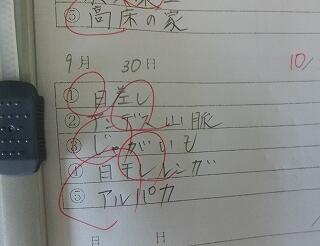 ⑤ 高床の家
9月 30日
10/
① 日差し
② アンデス山脈
③ じゃがいも
④ 日干しレンガ
⑤ アルパカ
月 日